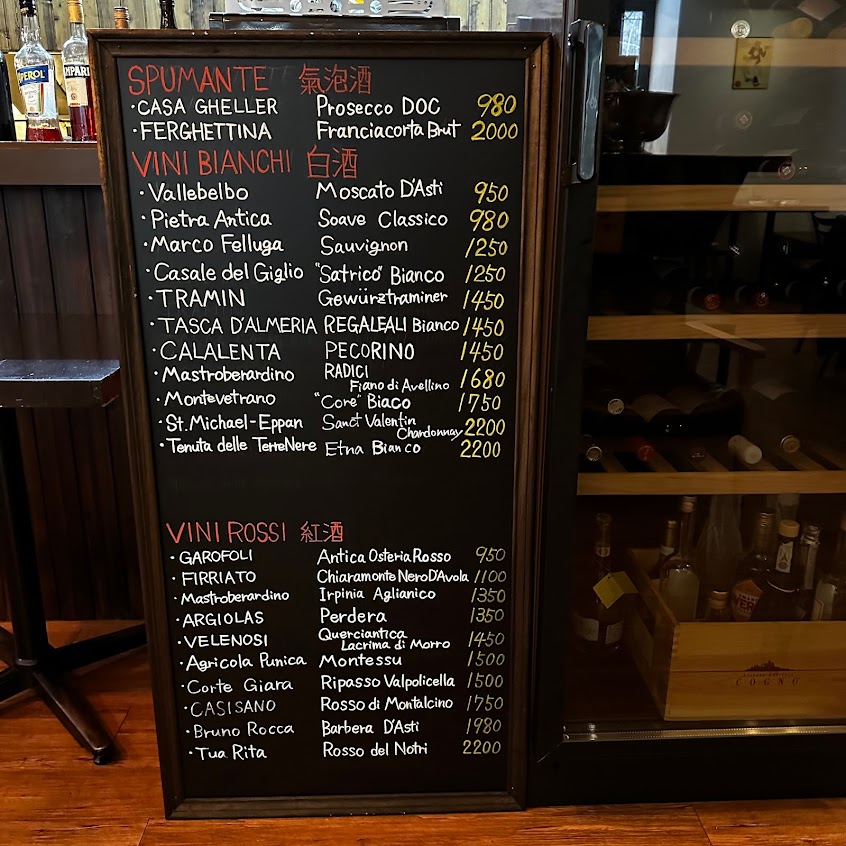 APEROL
CAMPARI
SPUMANTE 氣泡酒
·CASA GHELLER Prosecco DOC 980
·FERGHETTINA Franciacorta Brut 2000
VINI BIANCHI 白酒
·Vallebelbo Moscato D'Asti 950
·Pietra Antica Soave Classico 980
·Marco Felluga Sauvignon 1250
·Casale del Giglio "Satrico" Bianco 1250
·TRAMIN Gewürztraminer 1450
·TASCA D'ALMERIA REGALEALI Bianco 1450
·CALALENTA PECORINO 1450
·Mastroberardino RADICI
Fiano di Avellino 1680
·Montevetrano "Core" Biaco 1750
·St. Michael-Eppan Sanct Valentin
Chardonnay 2200
·Tenuta delle TerreNere Etna Bianco 2200
VINI ROSSI 紅酒
·GAROFOLI Antica Osteria Rosso 950
·FIRRIATO Chiaramonte Nero D'Avola 1100
·Mastroberardino Irpinia Aglianico 1350
·ARGIOLAS Perdera 1350
·VELENOSI Querciantica
Lacrima di Morro 1450
·Agricola Punica Montessu 1500
·Corte Giara Ripasso Valpolicella 1500
·CASISANO Rosso di Montalcino 1750
·Bruno Rocca Barbera D'Asti 1980
·Tua Rita Rosso del Notri 2200
COGNO